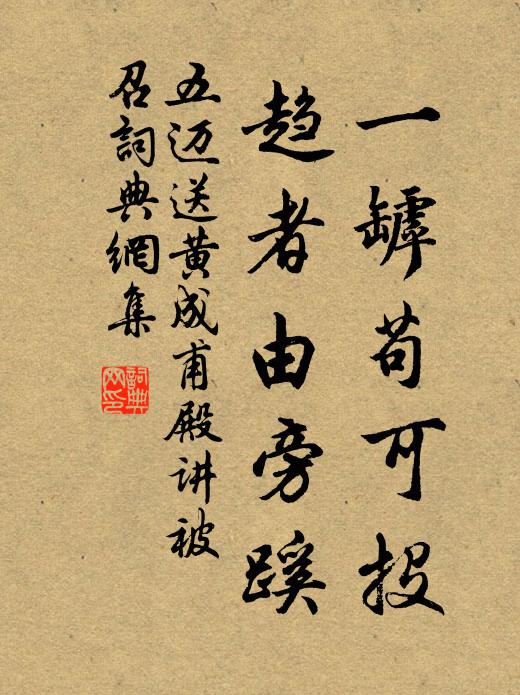 一罅苟可投
趋者由旁蹊
五迈送黄成甫殿讲被
召詞典網集
詞典网印